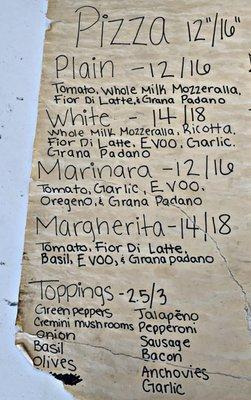 Pizza 12"/16"
Plain - 12/16
Tomato, Whole Milk Mozzeralla,
Fior Di Latte, & Grana Padano
White - 14/18
Whole Milk Mozzeralla, Ricotta,
Fior Di Latte, EVOO, Garlic,
Grana Padano
Marinara - 12/16
Tomato, Garlic, EVOO,
Oregeno, & Grana Padano
Margherita - 14/18
Tomato, Fior Di Latte,
Basil, EVOO, & Grana padano
Toppings - 2.5/3
Green peppers
Cremini mushrooms
onion
Basil
olives
Jalapeño
Pepperoni
Sausage
Bacon
Anchovies
Garlic